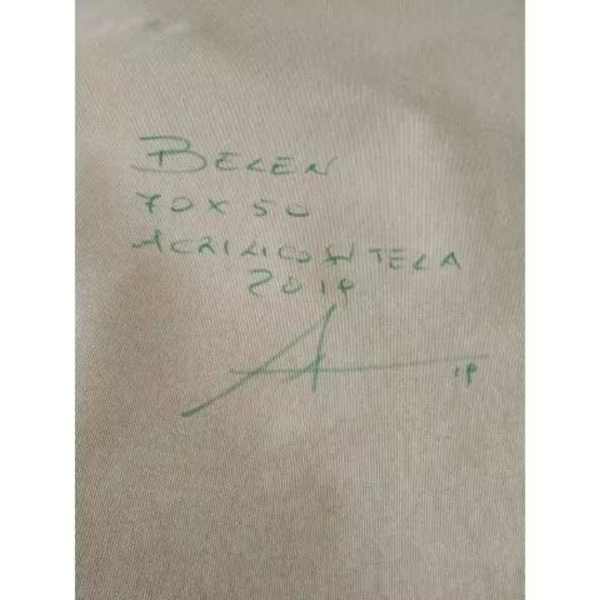 BELEN
70 X 50
ACRILICO S/ TELA
2019
A 19